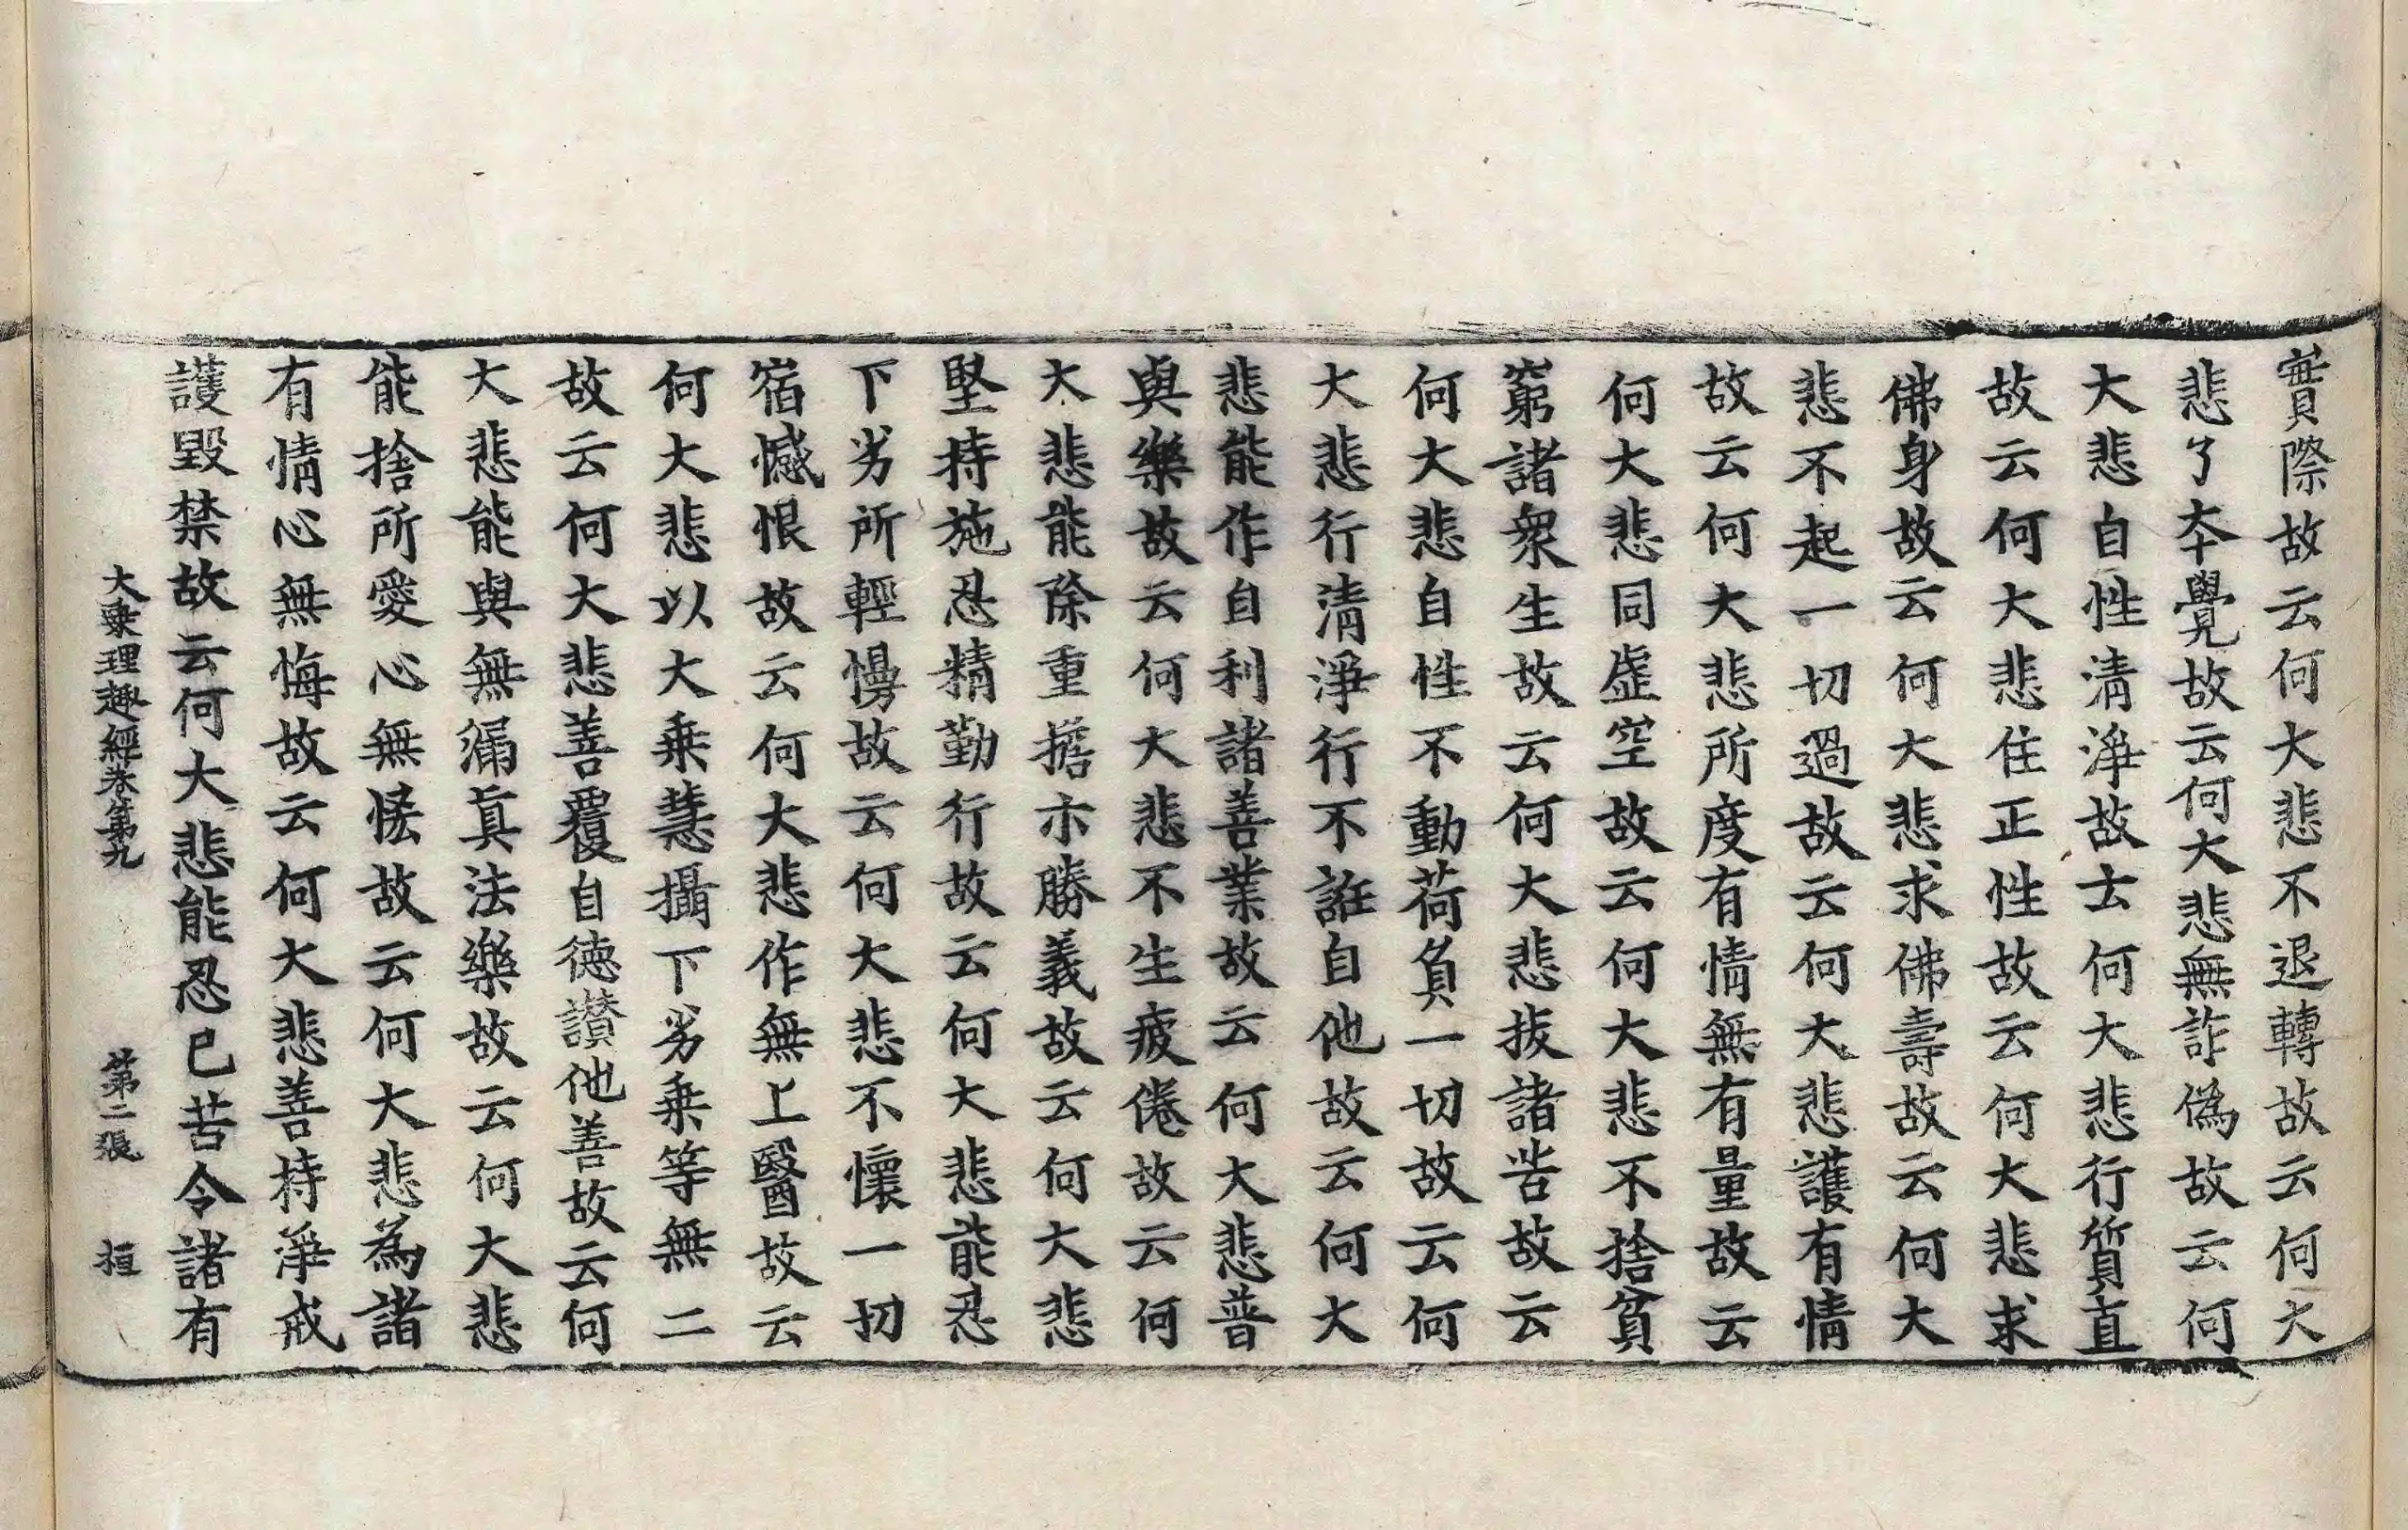 實際故云何大悲不退轉故云何大
悲了夲覺故云何大悲無詐偽故云何
大悲自性清淨故士何大悲行質直
故云何大悲住正性故云何大悲求
佛身故云何大悲求佛壽故云何大
悲不起一切過故云何大悲護有情
故云何大悲所度有情無有量故云
何大悲同虛空故云何大悲不捨貧
窮諸衆生故云何大悲拔諸苦故云
何大悲自性不動荷負一切故云何
大悲行清淨行不誑自他故云何大
悲能作自利諸善業故云何大悲普
與樂故云何大悲不生疲倦故云何
大悲能除重擔示勝義故云何大悲
堅持施忍精勤行故云何大悲能忍
下劣所輕慢故云何大悲不懷一切
宿憾恨故云何大悲作無上醫故云
何大悲以大乗慧攝下劣乗等無二
故云何大悲善覆自德讚他善故云何
大悲能與無漏真法樂故云何大悲
能捨所愛心無恡故云何大悲為諸
有情心無悔故云何大悲善持淨戒
護毀禁故云何大悲能忍已苦令諸有
大乗理趣經卷第九 第二張 桓